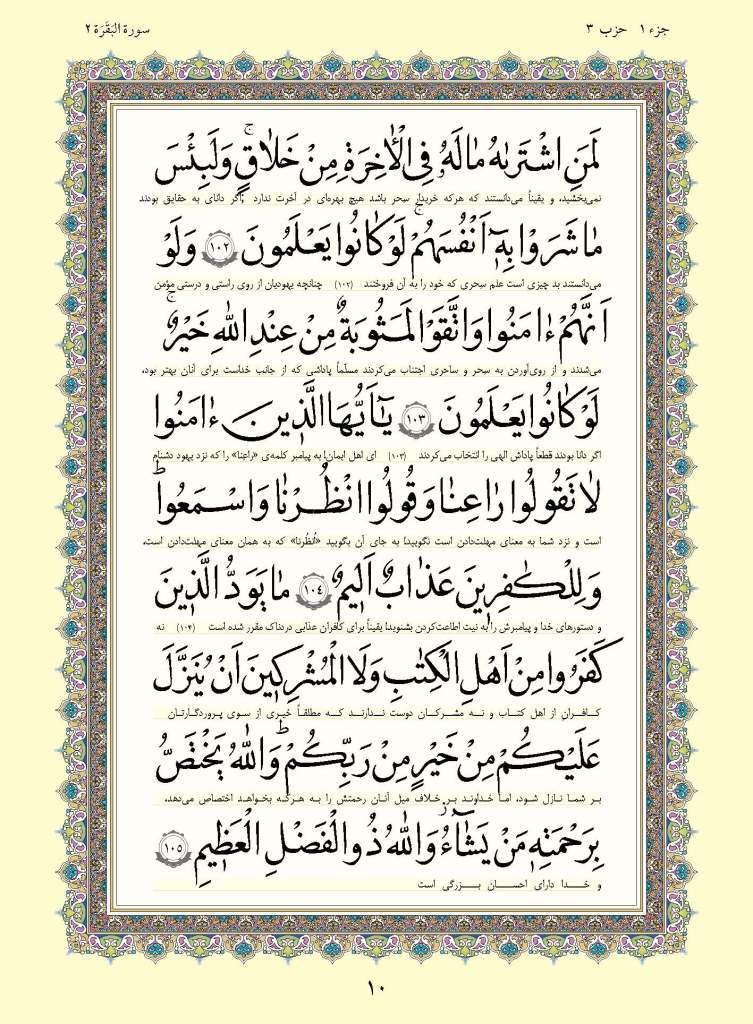 جزء ۱ حزب ۳
سورة البَقَرَة ۲
لَمَنِ اشْتَرٰىهُ مٰا لَهُ فِی الْاٰخِرَةِ مِنْ خَلٰاقٍ ۚ وَلَبِئْسَ
نمی‌بخشید، و یقیناً می‌دانستند که هرکه خریدار سحر باشد هیچ بهره‌ای در آخرت ندارد اگر دانای به حقایق بودند
مٰا شَرَوْا بِهِٓ اَنْفُسَهُمْ ۚ لَوْ کٰانُوا یَعْلَمُونَ ۱۰۲ وَلَوْ
می‌دانستند بد چیزی است علم سِحری که خود را به آن فروختند (۱۰۲) چنانچه یهودیان از روی راستی و درستی مؤمن
اَنَّهُمْ ءٰامَنُوا وَاتَّقَوْا لَمَثُوبَةٌ مِنْ عِنْدِ اللّٰهِ خَیْرٌ ۚ
می‌شدند و از روی‌آوردن به سحر و ساحری اجتناب می‌کردند مسلّماً پاداشی که از جانب خداست برای آنان بهتر بود،
لَوْ کٰانُوا یَعْلَمُونَ ۱۰۳ یٰٓا اَیُّهَا الَّذِینَ ءٰامَنُوا
اگر دانا بودند قطعاً پاداش الهی را انتخاب می‌کردند (۱۰۳) ای اهل ایمان! به پیامبر کلمه‌ی «راعِنا» را که نزد یهود دشنام
لٰا تَقُولُوا رٰاعِنٰا وَقُولُوا انْظُرْنٰا وَاسْمَعُوا ۗ
است و نزد شما به معنای مهلت‌دادن است نگویید! به جای آن بگویید «اُنظُرنا» که به همان معنای مهلت‌دادن است،
وَلِلْکٰفِرِینَ عَذٰابٌ اَلِیمٌ ۱۰۴ مٰا یَوَدُّ الَّذِینَ
و دستورهای خدا و پیامبرش را به نیت اطاعت‌کردن بشنوید! یقیناً برای کافران عذابی دردناک مقرر شده است (۱۰۴) نه
کَفَرُوا مِنْ اَهْلِ الْکِتٰبِ وَلَا الْمُشْرِکِینَ اَنْ یُنَزَّلَ
کافران از اهل کتاب و نه مشرکان دوست ندارند که مطلقاً خیری از سوی پروردگارتان
عَلَیْکُمْ مِنْ خَیْرٍ مِنْ رَبِّکُمْ ۗ وَاللّٰهُ یَخْتَصُّ
بر شما نازل شود، اما خداوند بر خلاف میل آنان رحمتش را به هرکه بخواهد اختصاص می‌دهد،
بِرَحْمَتِهِ مَنْ یَشٰٓاءُ ۚ وَاللّٰهُ ذُو الْفَضْلِ الْعَظِیمِ ۱۰۵
و خدا دارای احسان بزرگی است
۱۰